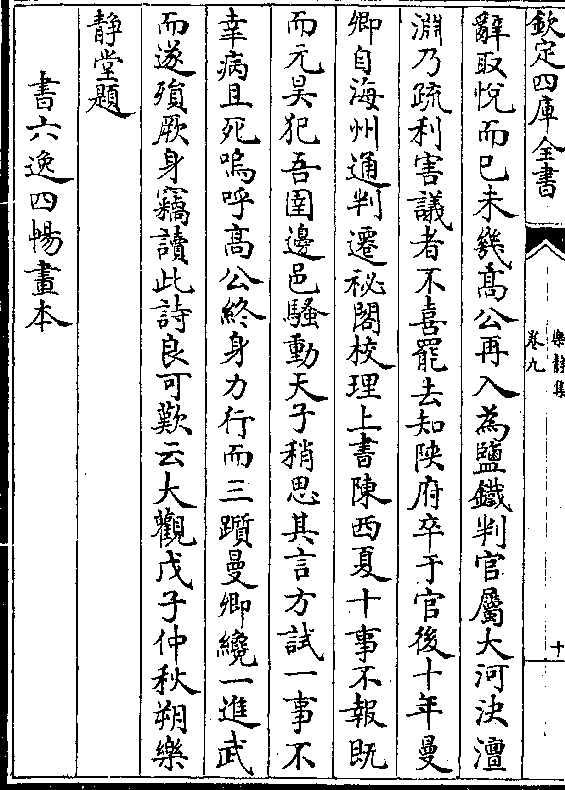 欽定四庫全書
樂靜集
卷九
十
辭取悅而已未幾髙公再入為鹽鐵判官屬大河決澶
淵乃疏利害議者不喜罷去知陜府卒于官後十年曼
卿自海州通判遷祕閣校理上書陳西夏十事不報既
而元昊犯吾圉邊邑騷動天子稍思其言方試一事不
幸病且死嗚呼髙公終身力行而三躓曼卿纔一進武
而遂殞厥身竊讀此詩良可歎云大觀戊子仲秋朔樂
靜堂題
書六逸四暢畫本